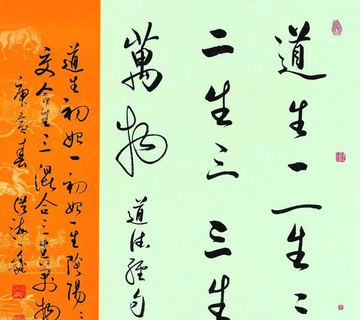 道生一一生二
二生三三生
萬物 道德經句
道生初始一初始一生陰陽
交合生三混合三生万物
庚寅春